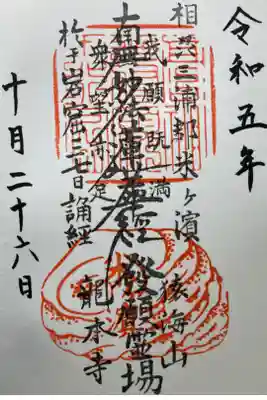 令和五年
相州三浦郡米ヶ濱 猿海山
我願既満
南無妙法蓮華經 發願霊場
衆望亦足
於于岩窟三七日誦経 龍本寺
十月二十六日